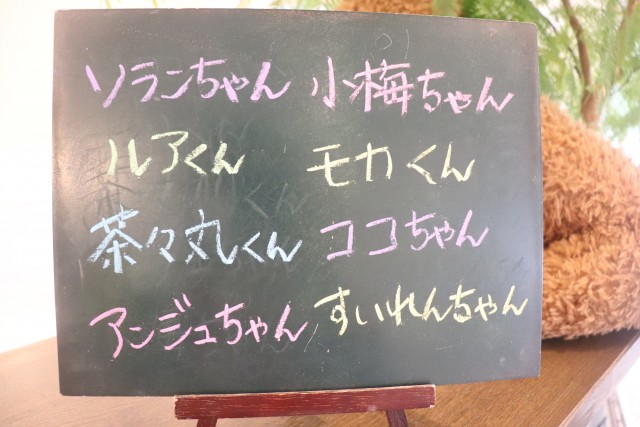 ソランちゃん 小梅ちゃん
ルアくん モカくん
茶々丸くん ココちゃん
アンジュちゃん すいれんちゃん